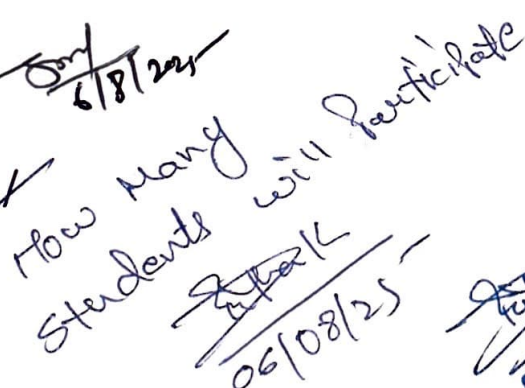 6/8/2025
How Many
students will Participate
06/08/25